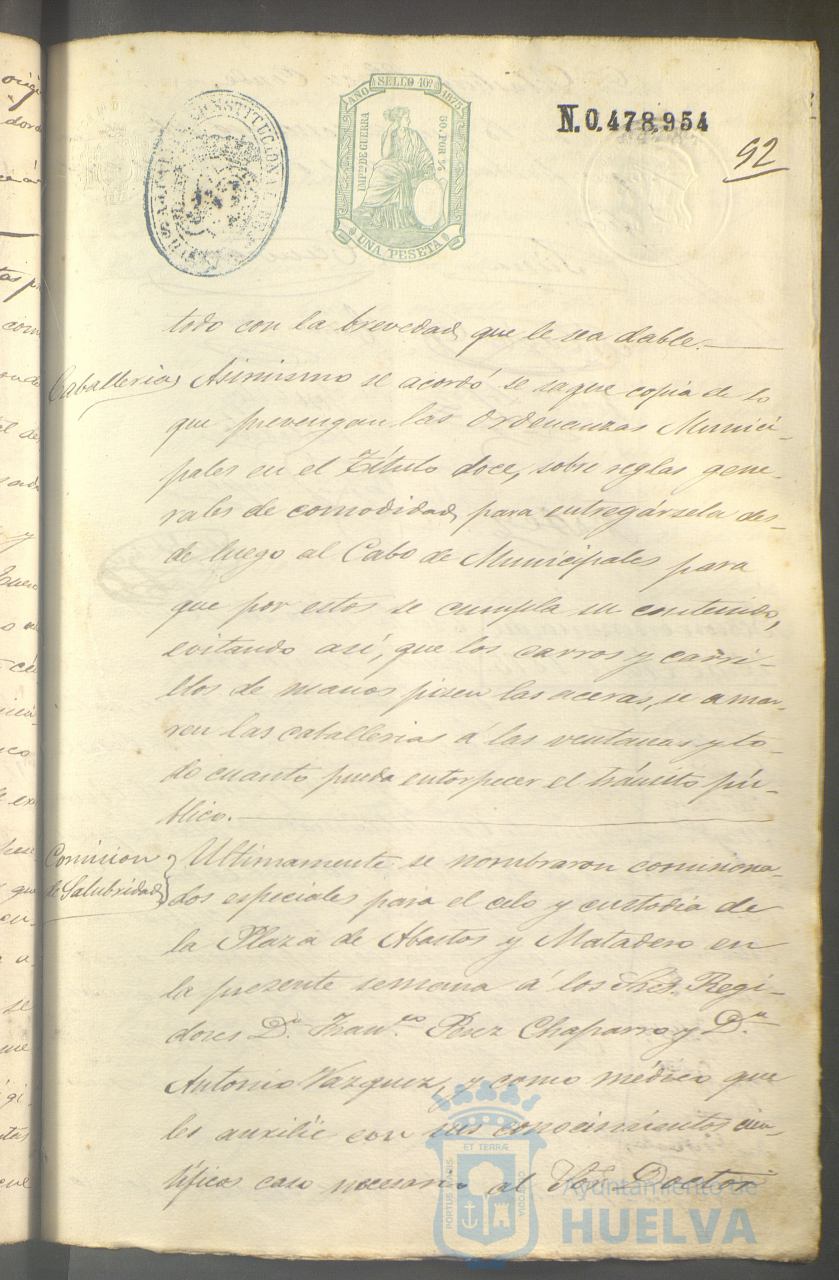 AÑO SELLO 10º 1875
IMPº DE GUERRA
50 POR %
UNA PESETA
N.0.478,954
92
todo con la brevedad que le sea dable.
Caballerias
Asimismo se acordó se saque copia de lo
que prevengan las Ordenanzas Munici-
pales en el Título doce, sobre reglas gene-
rales de comodidad, para entregársela des-
de luego al Cabo de Municipales para
que por estos se cumpla su contenido,
evitando así, que los carros y carri-
llos de manos pisen las aceras, se amar-
ren las caballerias á las ventanas y to-
do cuanto pueda entorpecer el tránsito pú-
blico.
Comision
de Salubridad
Ultimamente se nombraron comisiona-
dos especiales para el celo y custodia de
la Plaza de Abastos y Matadero en
la presente semana á los Sres. Regi-
dores Dn. Franco. Perez Chaparro y Dn.
Antonio Vazquez, y como médico que
les auxilie con sus conocimientos cien-
tíficos caso necesario al Sor. Doctor
PORTUS MARIS
ET TERRÆ
CUSTODIA
Ayuntamiento de
HUELVA